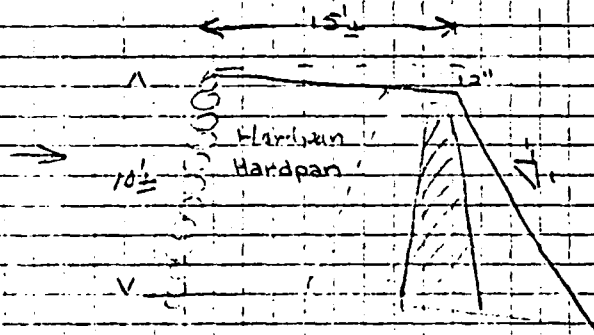 15'±
12"
Hardpan
Hardpan
10'±